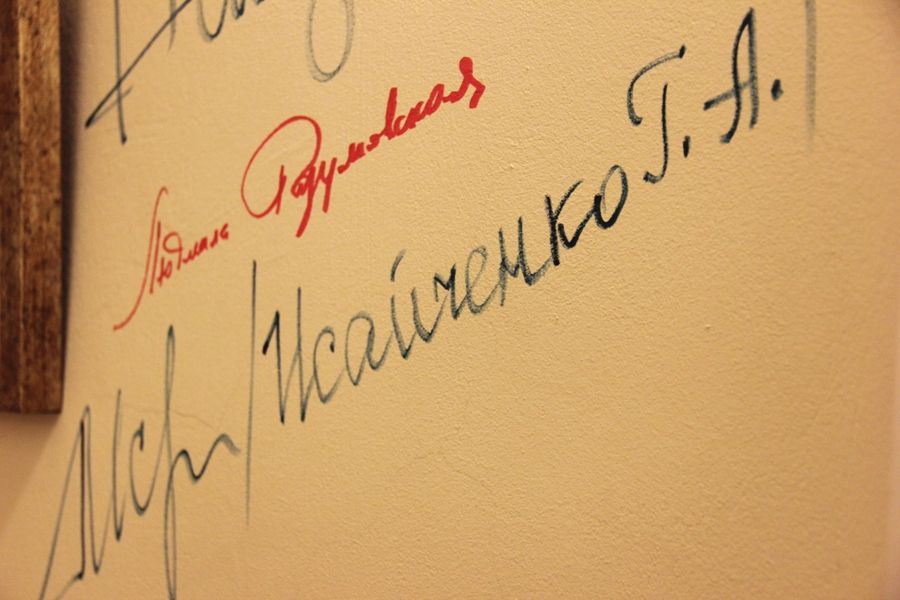 Людмила Разумовская
/Исайченко Г. А./